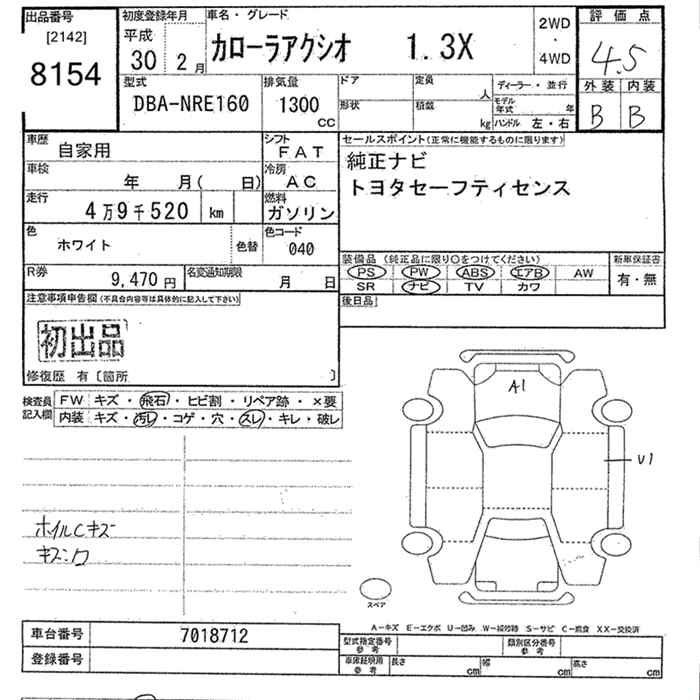 出品番号
[2142]
8154
初度登録年月
平成
30 2月
車名・グレード
カローラアクシオ 1.3X
2WD
・
4WD
評価点
4.5
外装 内装
B B
型式
DBA-NRE160
排気量
1300
CC
ドア
形状
定員
人
積載
kg
ディーラー・並行
モデル
年式 年
ハンドル 左・右
車歴
自家用
シフト
FAT
セールスポイント(正常に機能するものに限ります)
純正ナビ
トヨタセーフティセンス
車検
年 月( 日)
冷房
AC
走行
4万9千520 km
燃料
ガソリン
色
ホワイト
色替
色コード
040
装備品 (純正品に限り○をつけてください)
PS PW ABS エアB AW
SR ナビ TV カワ
新車保証書
有・無
R券
9,470円
名変通知期限
月 日
後日品
注意事項申告欄(不具合内容等は具体的に記入して下さい)
初出品
修復歴 有〔箇所 〕
検査員
記入欄
FW キズ・飛石・ヒビ割・リペア跡・×要
内装 キズ・汚レ・コゲ・穴・スレ・キレ・破レ
A1
U1
ホイルCキズ
スペア
A-キズ E-エクボ U-凹み W-補修跡 S-サビ C-腐食 XX-交換済
車台番号
7018712
登録番号
型式指定番号
参考
類別区分番号
参考
車庫証明用
参考
長さ cm
幅 cm
高さ cm